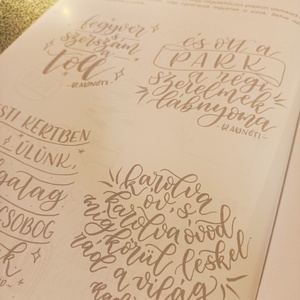 fegyver
s
szerszám
a
toll
-RADNÓTI-
és ott a
PARK
a régi
szerelmek
lábnyoma
-RADNÓTI-
ESTI KERTBEN
ÜLÜNK,
CSOBOG
karolva
óv, s
karolva óvod
míg körül leskel
rád a világ